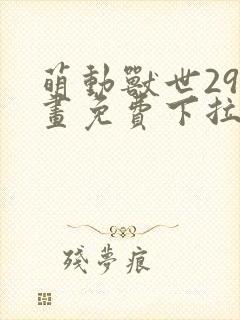 萌動獸世29
畫免費下拉
殘夢痕